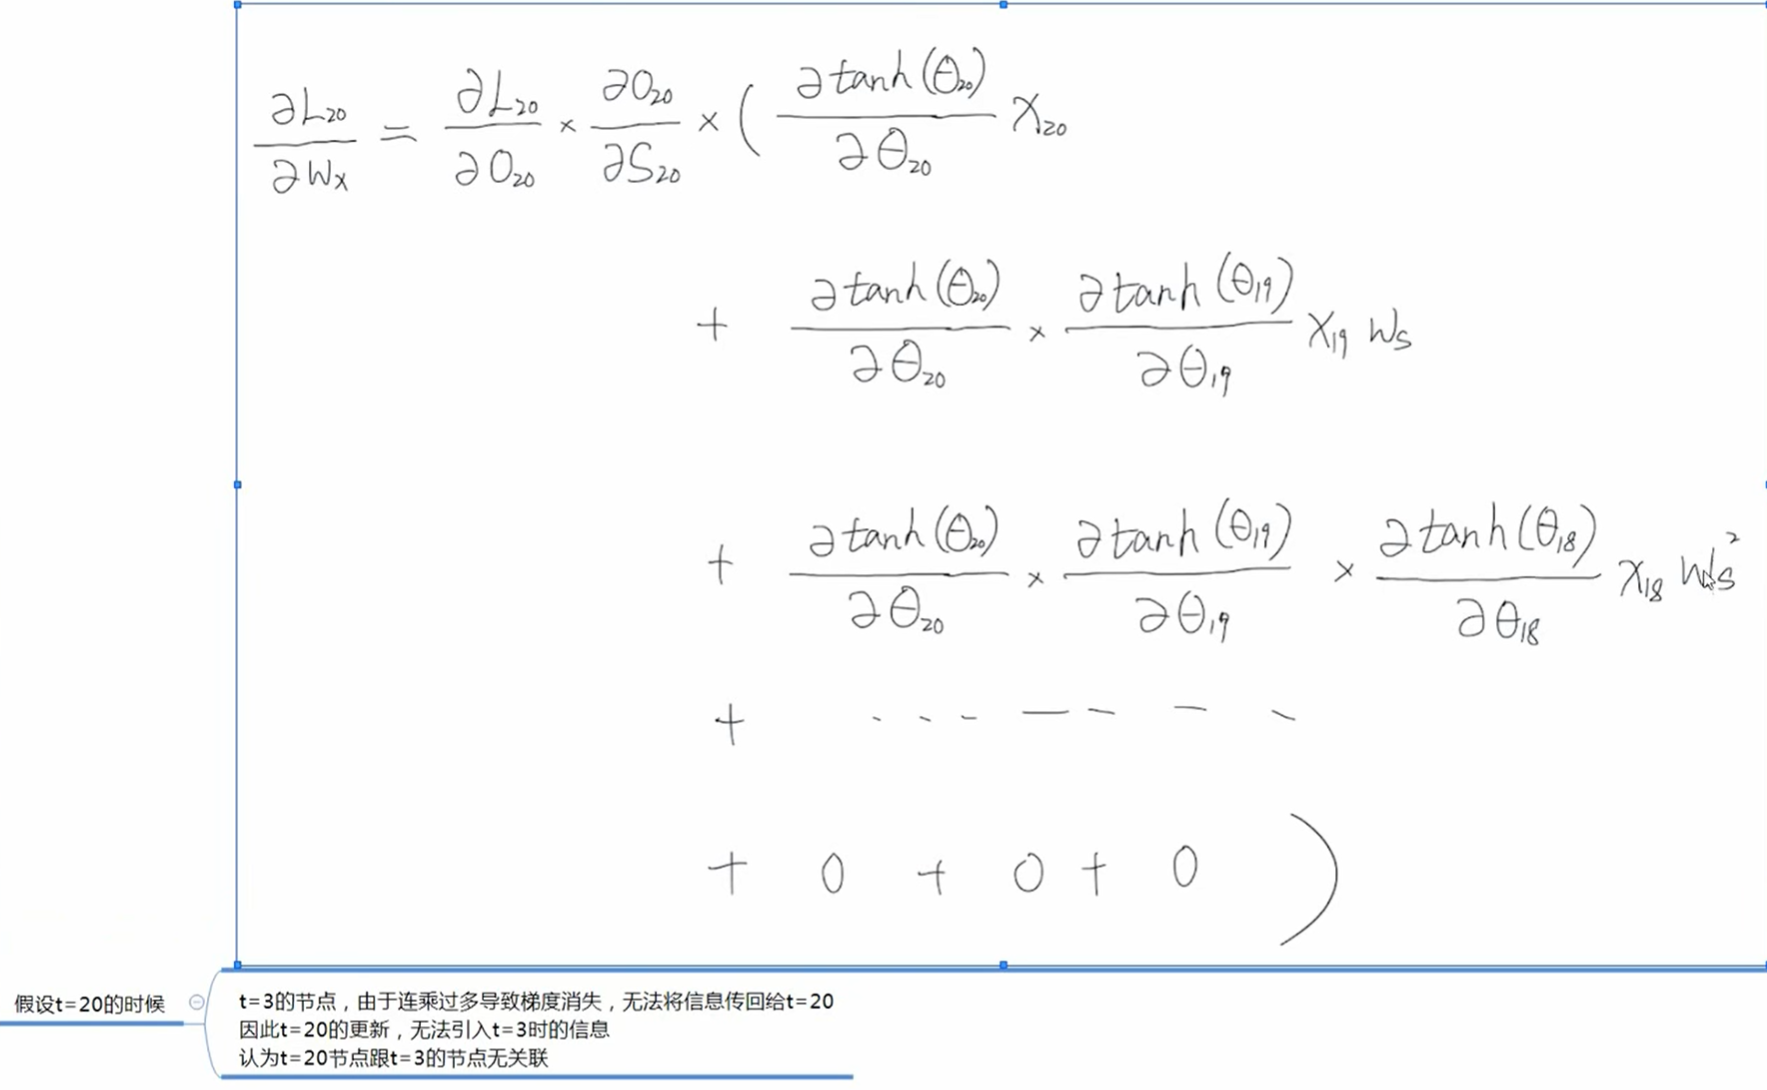 ∂L₂₀/∂Wx = ∂L₂₀/∂O₂₀ × ∂O₂₀/∂S₂₀ × ( ∂tanh(θ₂₀)/∂θ₂₀ X₂₀
+ ∂tanh(θ₂₀)/∂θ₂₀ × ∂tanh(θ₁₉)/∂θ₁₉ X₁₉ Ws
+ ∂tanh(θ₂₀)/∂θ₂₀ × ∂tanh(θ₁₉)/∂θ₁₉ × ∂tanh(θ₁₈)/∂θ₁₈ X₁₈ Ws²
+ ... — — — —
+ 0 + 0 + 0 )
假设t=20的时候
t=3的节点，由于连乘过多导致梯度消失，无法将信息传回给t=20
因此t=20的更新，无法引入t=3时的信息
认为t=20节点跟t=3的节点无关联